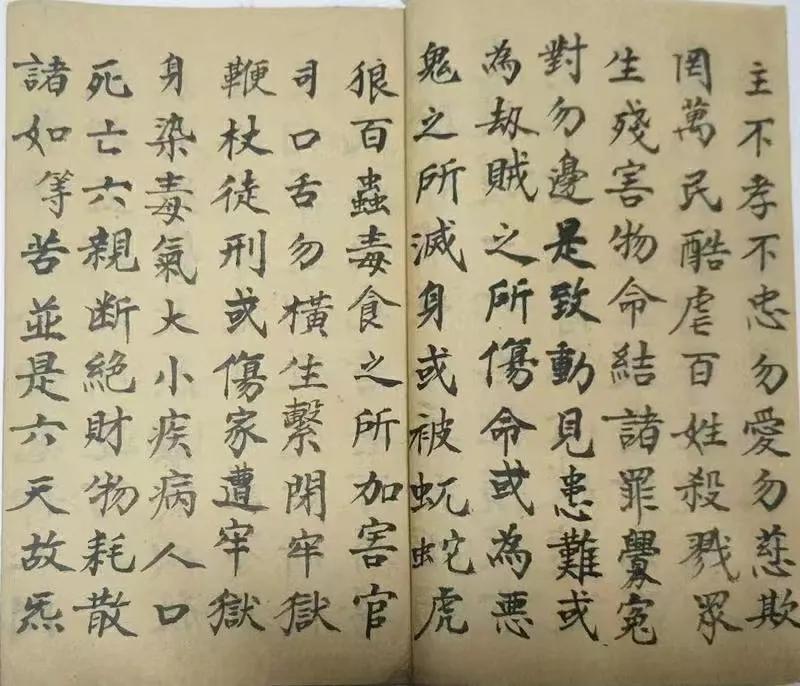 主不孝不忠勿愛勿慈欺
罔萬民酷虐百姓殺戮眾
生殘害物命結諸罪釁冤
對勿邊是致動見患難或
為劫賊之所傷命或為惡
鬼之所滅身或被虺蛇虎
狼百蟲毒食之所加害官
司口舌勿橫生繫閉牢獄
鞭杖徒刑或傷家遭牢獄
身染毒氣大小疾病人口
死亡六親断絕財物耗散
諸如等苦並是六天故炁